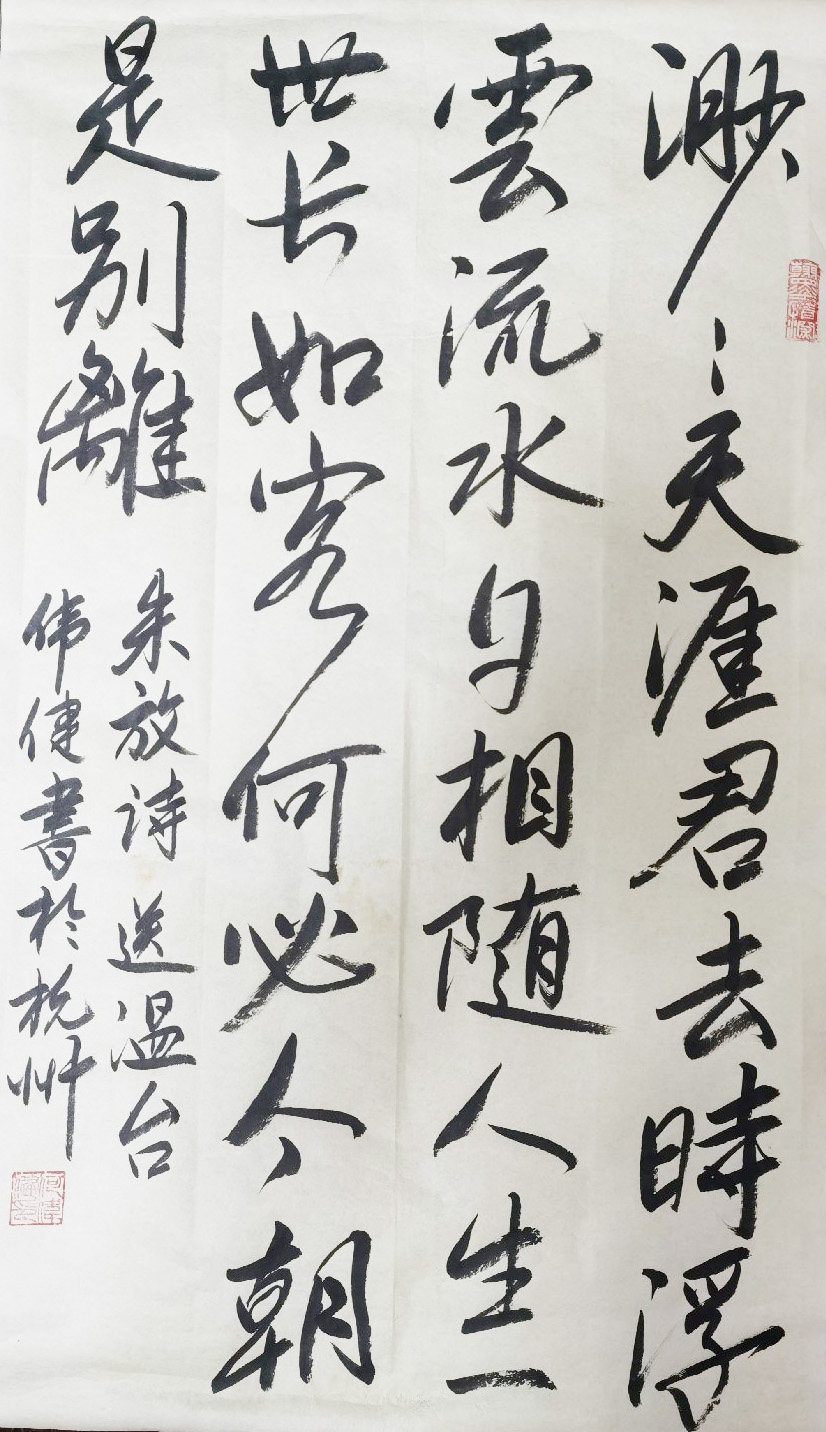 渺〻天涯君去時浮
雲流水自相随人生一
世长如客何必今朝
是别離
朱放诗 送温台
伟健書於杭州